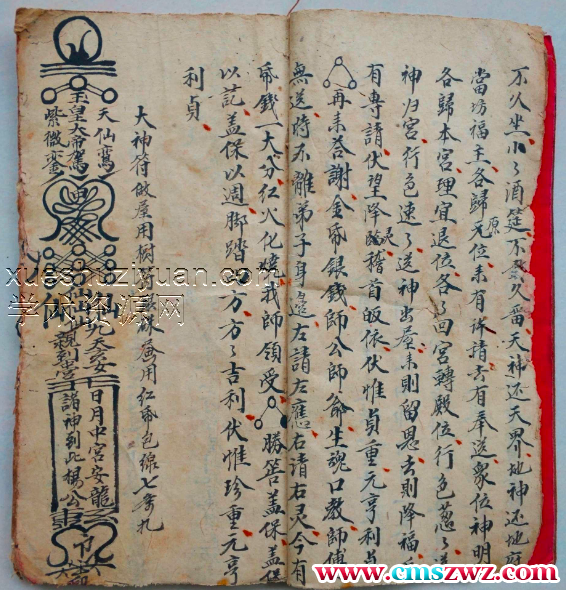 不久坐小々酒筵不久畱天神还天界地神还地府
當坊福主各歸元位来有许請去有奉送衆位神明
原
各歸本宮理宜退位各々回宮轉殿位行色葱々送
神归宮行色速々送神出屋来則留恩去則降福
有專請伏望降臨稽首皈依伏惟貞重元亨利貞
再来答謝金帋銀錢師公師爺生魂口教師傅
無送時不離弟子身邊左請左應右請右灵今有
帋錢一大分红火化燒我師領受 勝筶蓋保蓋保
以訖蓋保以週脚踏四方方々吉利伏惟珍重元亨
利貞
大神符做屋用樹符 屋用红帋色線七条扎
天仙鸞
玉皇大帝駕
紫微鑾
日月中宮安龍
諸神到此楊公
xueshuziyuan.com
学术资源网
www.cmszwz.com